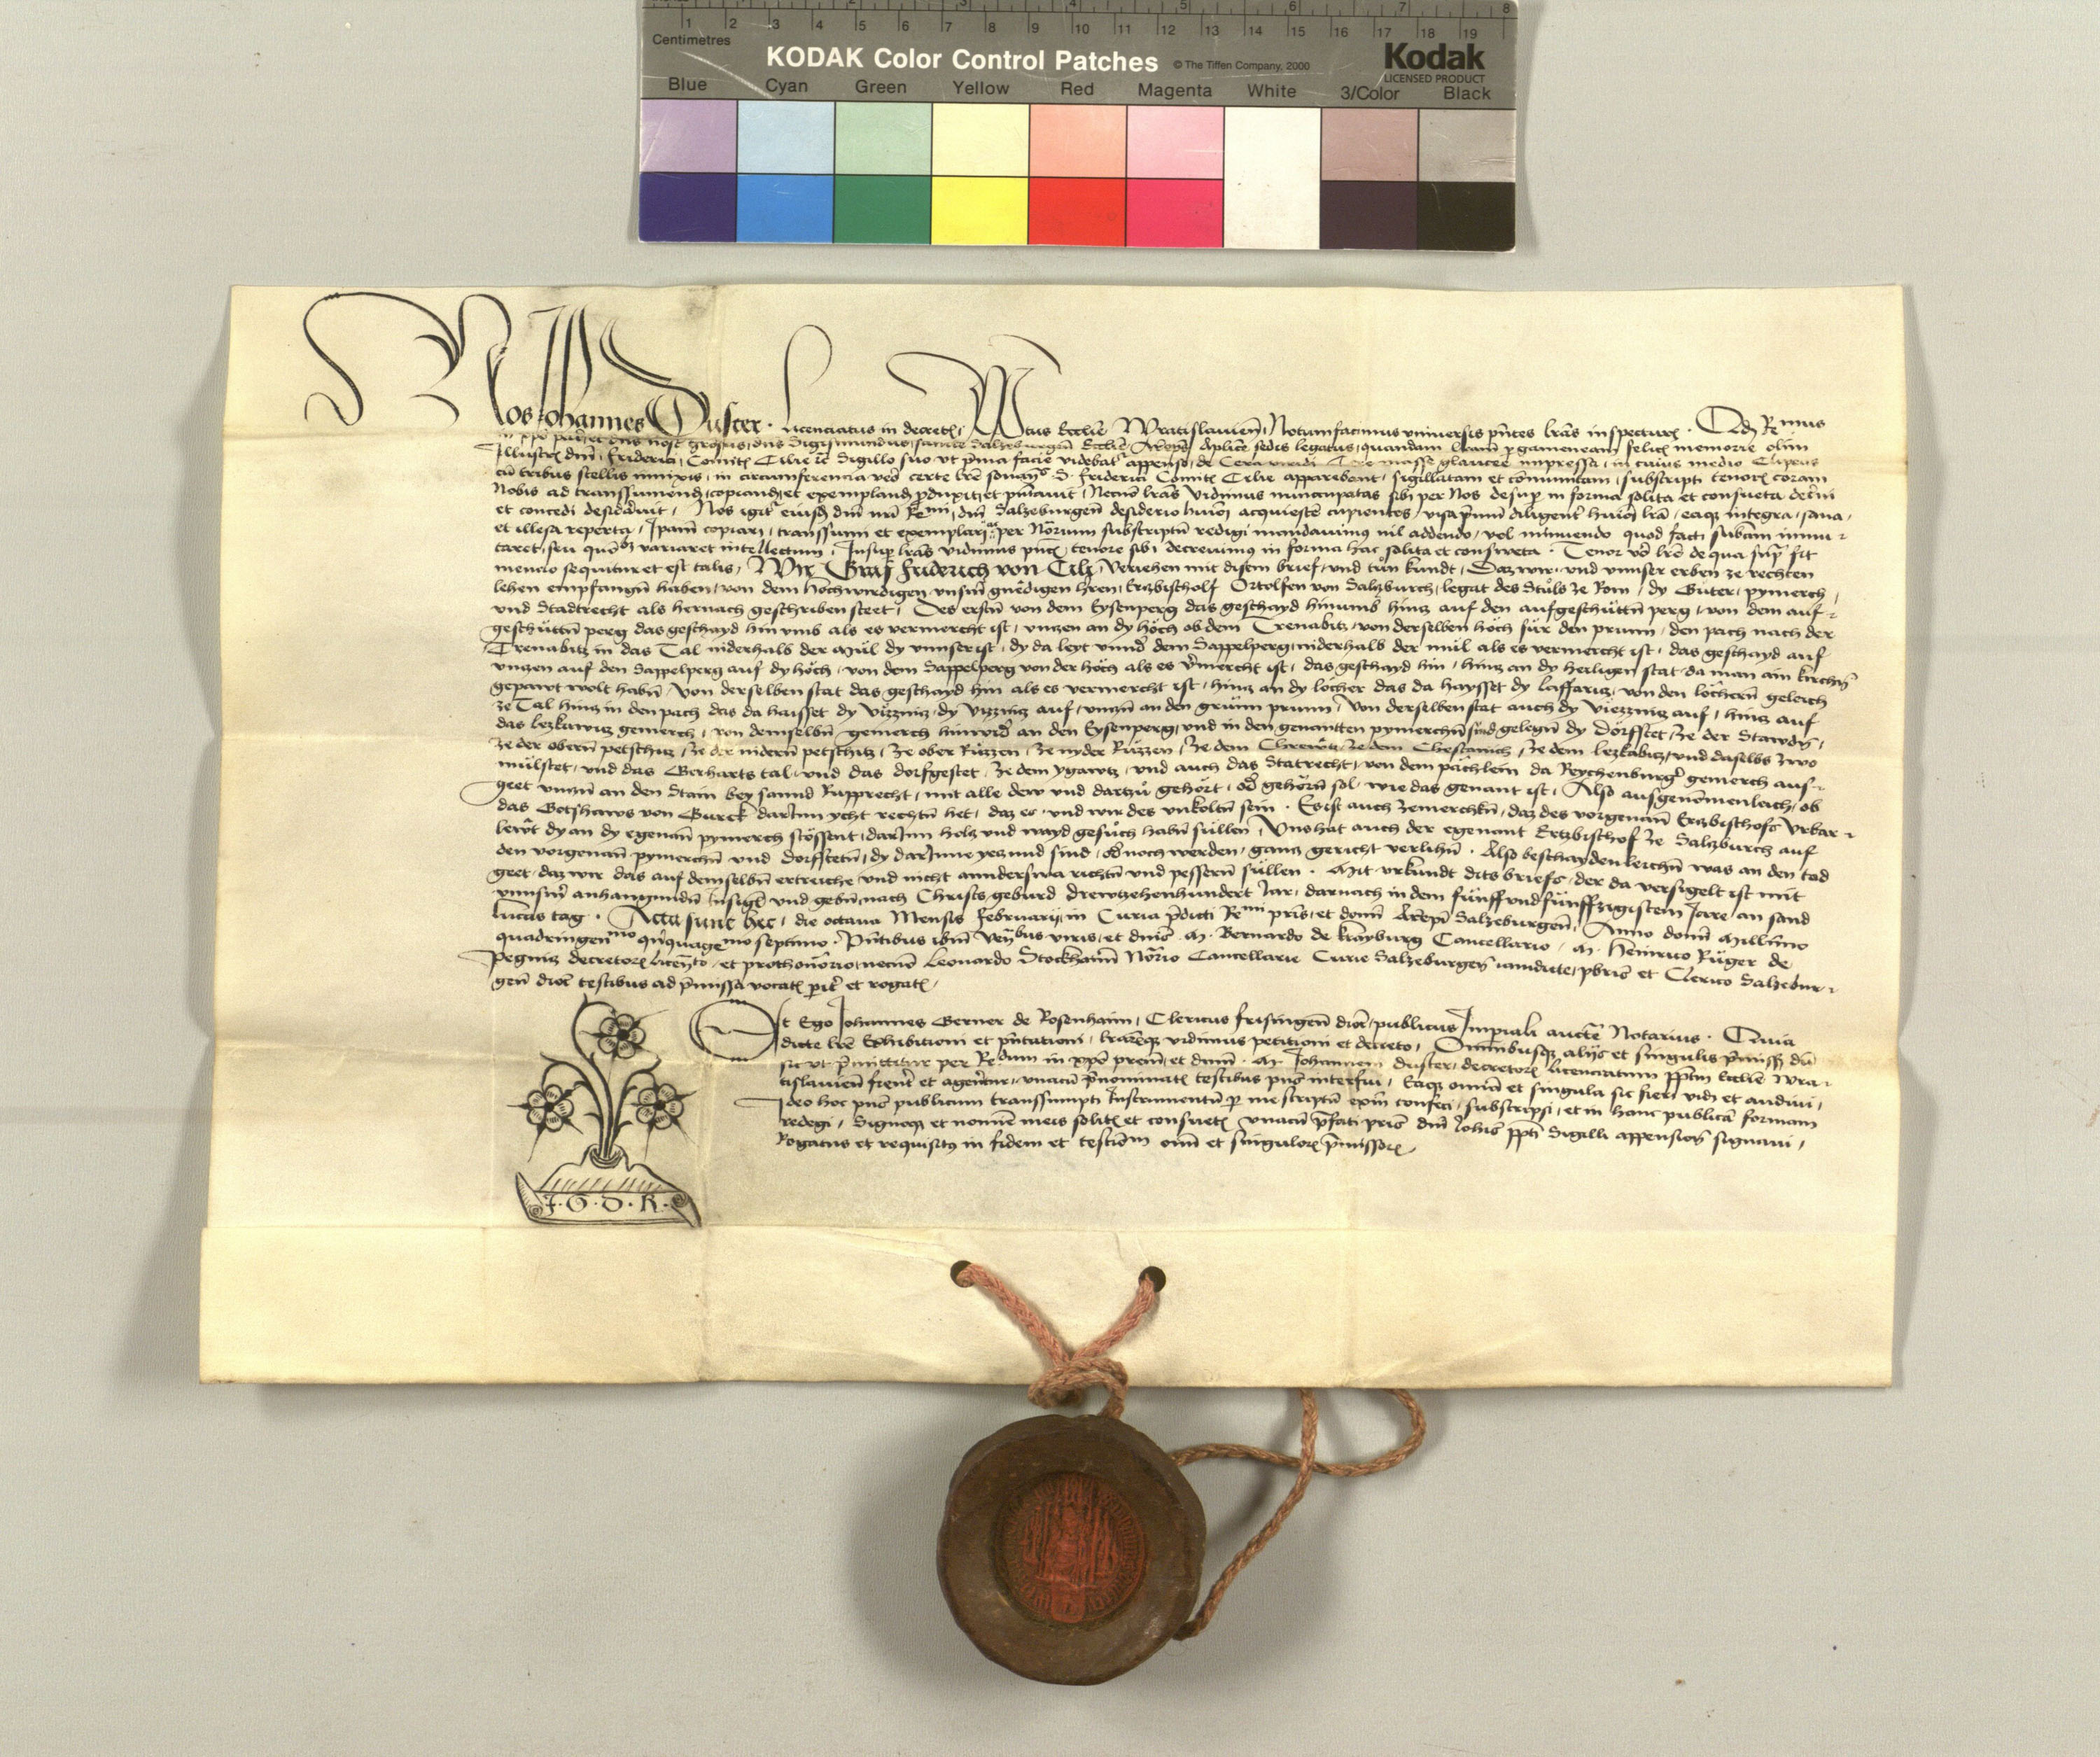 1 2 3 4 5 6 7 8
1 2 3 4 5 6 7 8 9 10 11 12 13 14 15 16 17 18 19
Centimetres
KODAK Color Control Patches © The Tiffen Company, 2000 Kodak
LICENSED PRODUCT
Blue Cyan Green Yellow Red Magenta White 3/Color Black
Nos Johannes Duster · licenciatus in decretis, ppitus Ecclie Wratislavien, Notumfacimus universis pntes lras inspecturis · Qd Remus
in xpo pater et dns nost grosus, dns Sigismundus, sancte Salzeburgen Ecclie Archieps Aplice sedis legatus, quandam lram pgameneam felicis memorie olim
Illustris dni, friderici, Comitis Cilie etc Sigillo suo ut prima facie videbatr appenso, de Cera viridi masse glaucee impressa, in cuius medio Clipeus
cu tribus stellis innixis, in circumferencia vero certe lre sonantes S. friderici Comitis Cilie apparebant, sigillatam et communitam, subscripti tenoris coram
Nobis ad transsumend, copiand, et exempland pduxit, et pntavit, Necno lras Vidimus nuncupatas sibi per Nos desup in forma solita et consueta decerni
et concedi desideravit, Nos igitr eiusd dni nri Remi, dni Salzeburgen desiderio huiq acquiescere cupientes, visa primu diligenter huiq lra, eaq integra, sana,
et illesa reperta, Ipam copiari, transsumi et exemplari, per Norium substriptu redigi mandavimus nil addendo, vel minuendo quod facti subam immu-
taret, seu quovis variaret intellectum, Insup lras vidimus pntis tenore sibi decrevimus in forma hac solita et consweta · Tenor vo lre de qua sup fit
mencio sequitur et est talis, Wir Graf friderich von Cily, veriehen mit disem brief, und tun kundt, Daz wir, und unnser erben ze rechten
lehen empfangn haben, von dem hochwirdigen unserm gnedigen hren, Ertzbischolf Ortolfen von Salzburch, legat des Stuls ze Rom, dy Guter, pymerch,
und Stadtrecht als hernach geschriben steet, Des ersten von dem Eysenperg das geschayd hinumb hintz auf den aufgeschuttn perg, von dem auf-
geschuttn perg das geschayd hin umb als es vermercht ist, untzen an dy hoch ob dem Trenabitz, von derselben hoch fur den prunn, den pach nach der
Trenabitz in das Tal niderhalb der Mul dy unnser ist, dy da leyt unnd dem Sappelperg, niderhalb der mul als es vermercht ist, das geschayd auf
untzen auf den Sappelperg auf dy hoch, von dem Sappelperg von der hoch als es vermercht ist, das geschayd hin, hintz an dy heiligen stat, da man ain kirchn
gepawt wolt habn, von derselben stat das geschayd hin als es vermercht ist, hintz an dy locher das da haysset dy laffaritz, von den lochern geleich
ze Tal hintz in den pach das da haisset dy Vizznitz, dy Vizznitz auf, untzn an den grunn prunn, Von derselben stat auch dy Viezznitz auf, hintz auf
das lezkawitz gemerch, von demselbn gemerch hinwid an den Eysenperg, und in den genantten pymerchn sind gelegn dy Dorffstet, ze der Stawdn,
ze der obern petschitz, ze der nidern petschitz, ze ober Ruzzen, ze nyder Ruzzen, ze dem Chrewtz, ze dem Chestanich, ze dem lezkabitz, und daselbs zwo
mulstet, und das Gerharts tal, und das dorfgestet, ze dem ygawtz, und auch das Statrecht, von dem pachlein da Reychenburger gemerch auf-
geet untzn an den Stain bey sannd Rupprecht, mit alle dew und dartzu gehort, od gehorn sol, wie das genant ist, Also ausgenomenleich, ob
das Gotshaws von Gurck darInn ycht rechtn het, daz es, und wir des unkoltn sein · Es ist auch zemerchkn, daz des vorgenan Ertzbischofs Urbar-
lewt dy an dy egenan pymerch stossent, darInn holtz und wayd gesuch habn sullen, Uns hat auch der egenant Ertzbischof ze Salzburch auf
den vorgenan pymerchn und dorffstetn, dy darInne yetzund sind, od noch werden, gantz gericht verlihn · Also beschaydenleichn was an den tod
geet, daz wir das auf demselbn ertreiche, und nicht annderswa richtn und pessern sullen · Mit urkundt dits briefs, der da versigelt ist mit
unnserm anhangundn Insigl und gebn, nach Christs geburd drewtzehenhundert Jar, darnach in dem funff und funffzigistem Jare an sand
lucas tag · Acta sunt hec, die octava Mensis february, in Curia pdicti Remi pris, et domi Archiepi Salzeburgen, Anno domi Millimo
quadringenmo quinquagemo septimo · Pntibus ibm venbus viris, et dnis M. Bernardo de krayburg Cancellario, M. Heinrico Ruger de
Pegnitz decretoris licento, et prothonorio, necno Leonardo Stockhaim Norio Cancellarie Curie Salzeburgen iamdicte, pbris et Clerico Salzebur-
gen dioc testibus ad pmissa vocatis pit et rogatis,
Et Ego Johannes Gerner de Rosenhaim, Clericus frisingen dioc, publicus Imperiali aucte Notarius · Quia
dicte lre Exhibitioni et pntationi, lrareq vidimus petitioni et decreto, Omnibusq alijs et singulis pmissis du
sic ut pmittitur per Redum in xpo prem, et dnm · M. Johannem duster, decretoris licenciatum ppitm ecclie Wra-
tislavien fierent et agerentur, unacu pnominatis testibus pns interfui, Eaq omia et singula sic fieri vidi et audivi,
Ideo hoc pns publicum transsumpti Instrumentu p me scriptu exin confeci, subscripsi, et in hanc publica formam
redegi, Signoq et nomine meis solitis et consuetis unacu pfati pris dni Johis ppti Sigilli appensione signavi,
Rogatus et requisitus in fidem et testiom oim et singuloris pmissoris,
J · G · D · R ·